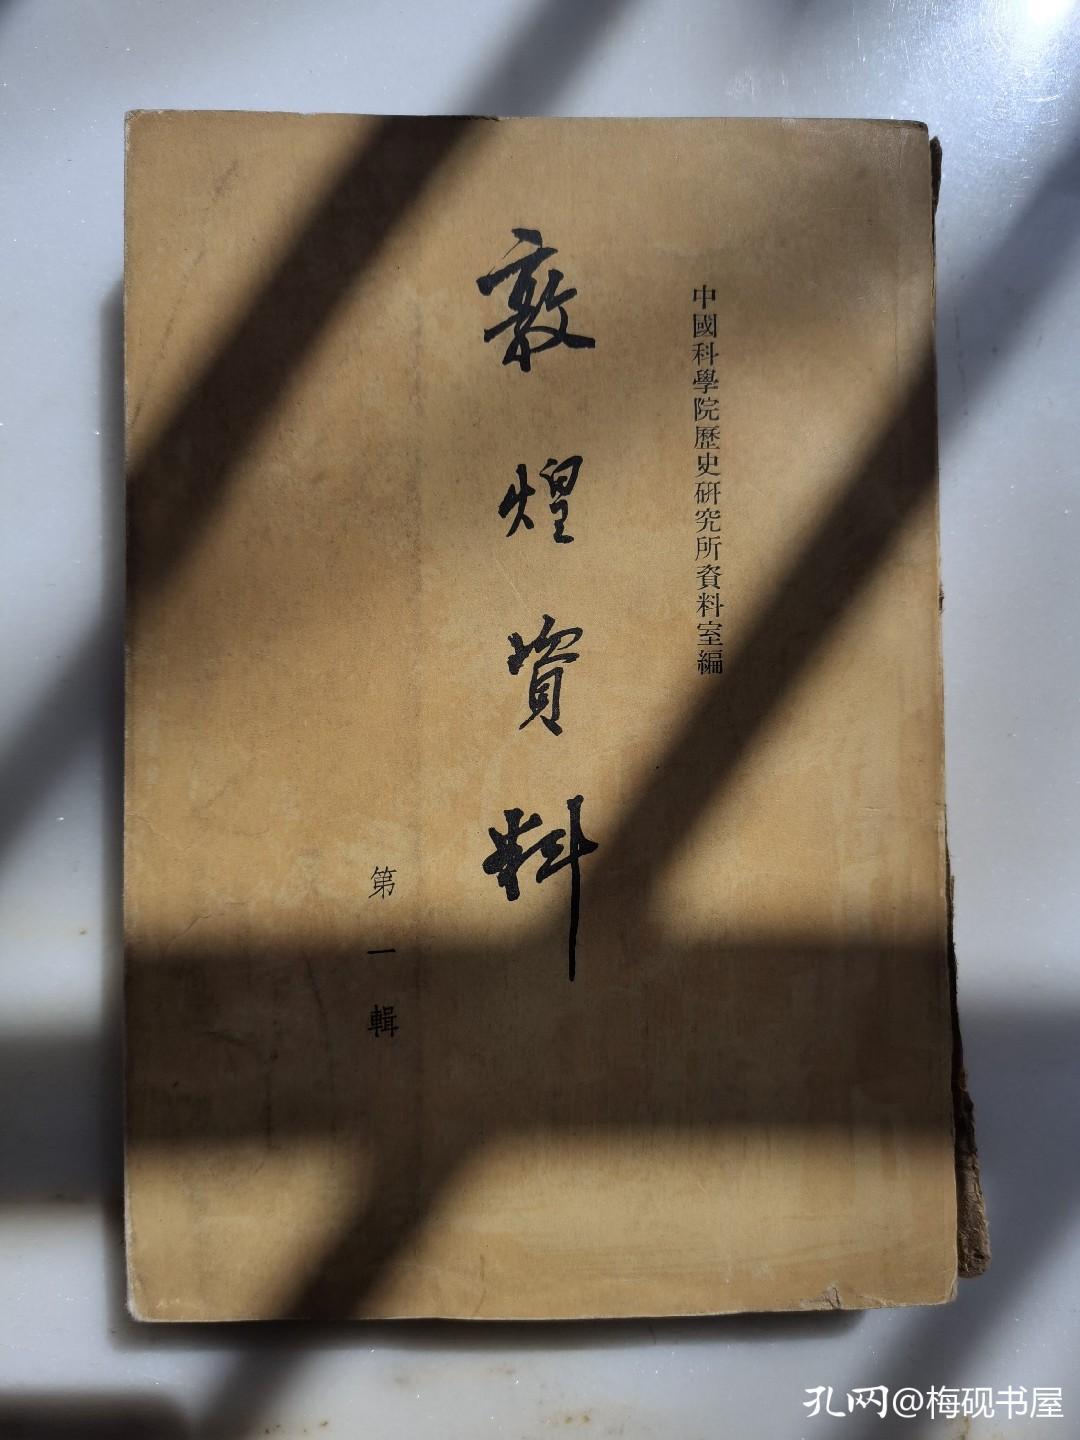 中國科學院歷史研究所資料室編
敦煌資料
第一輯
孔网@梅砚书屋